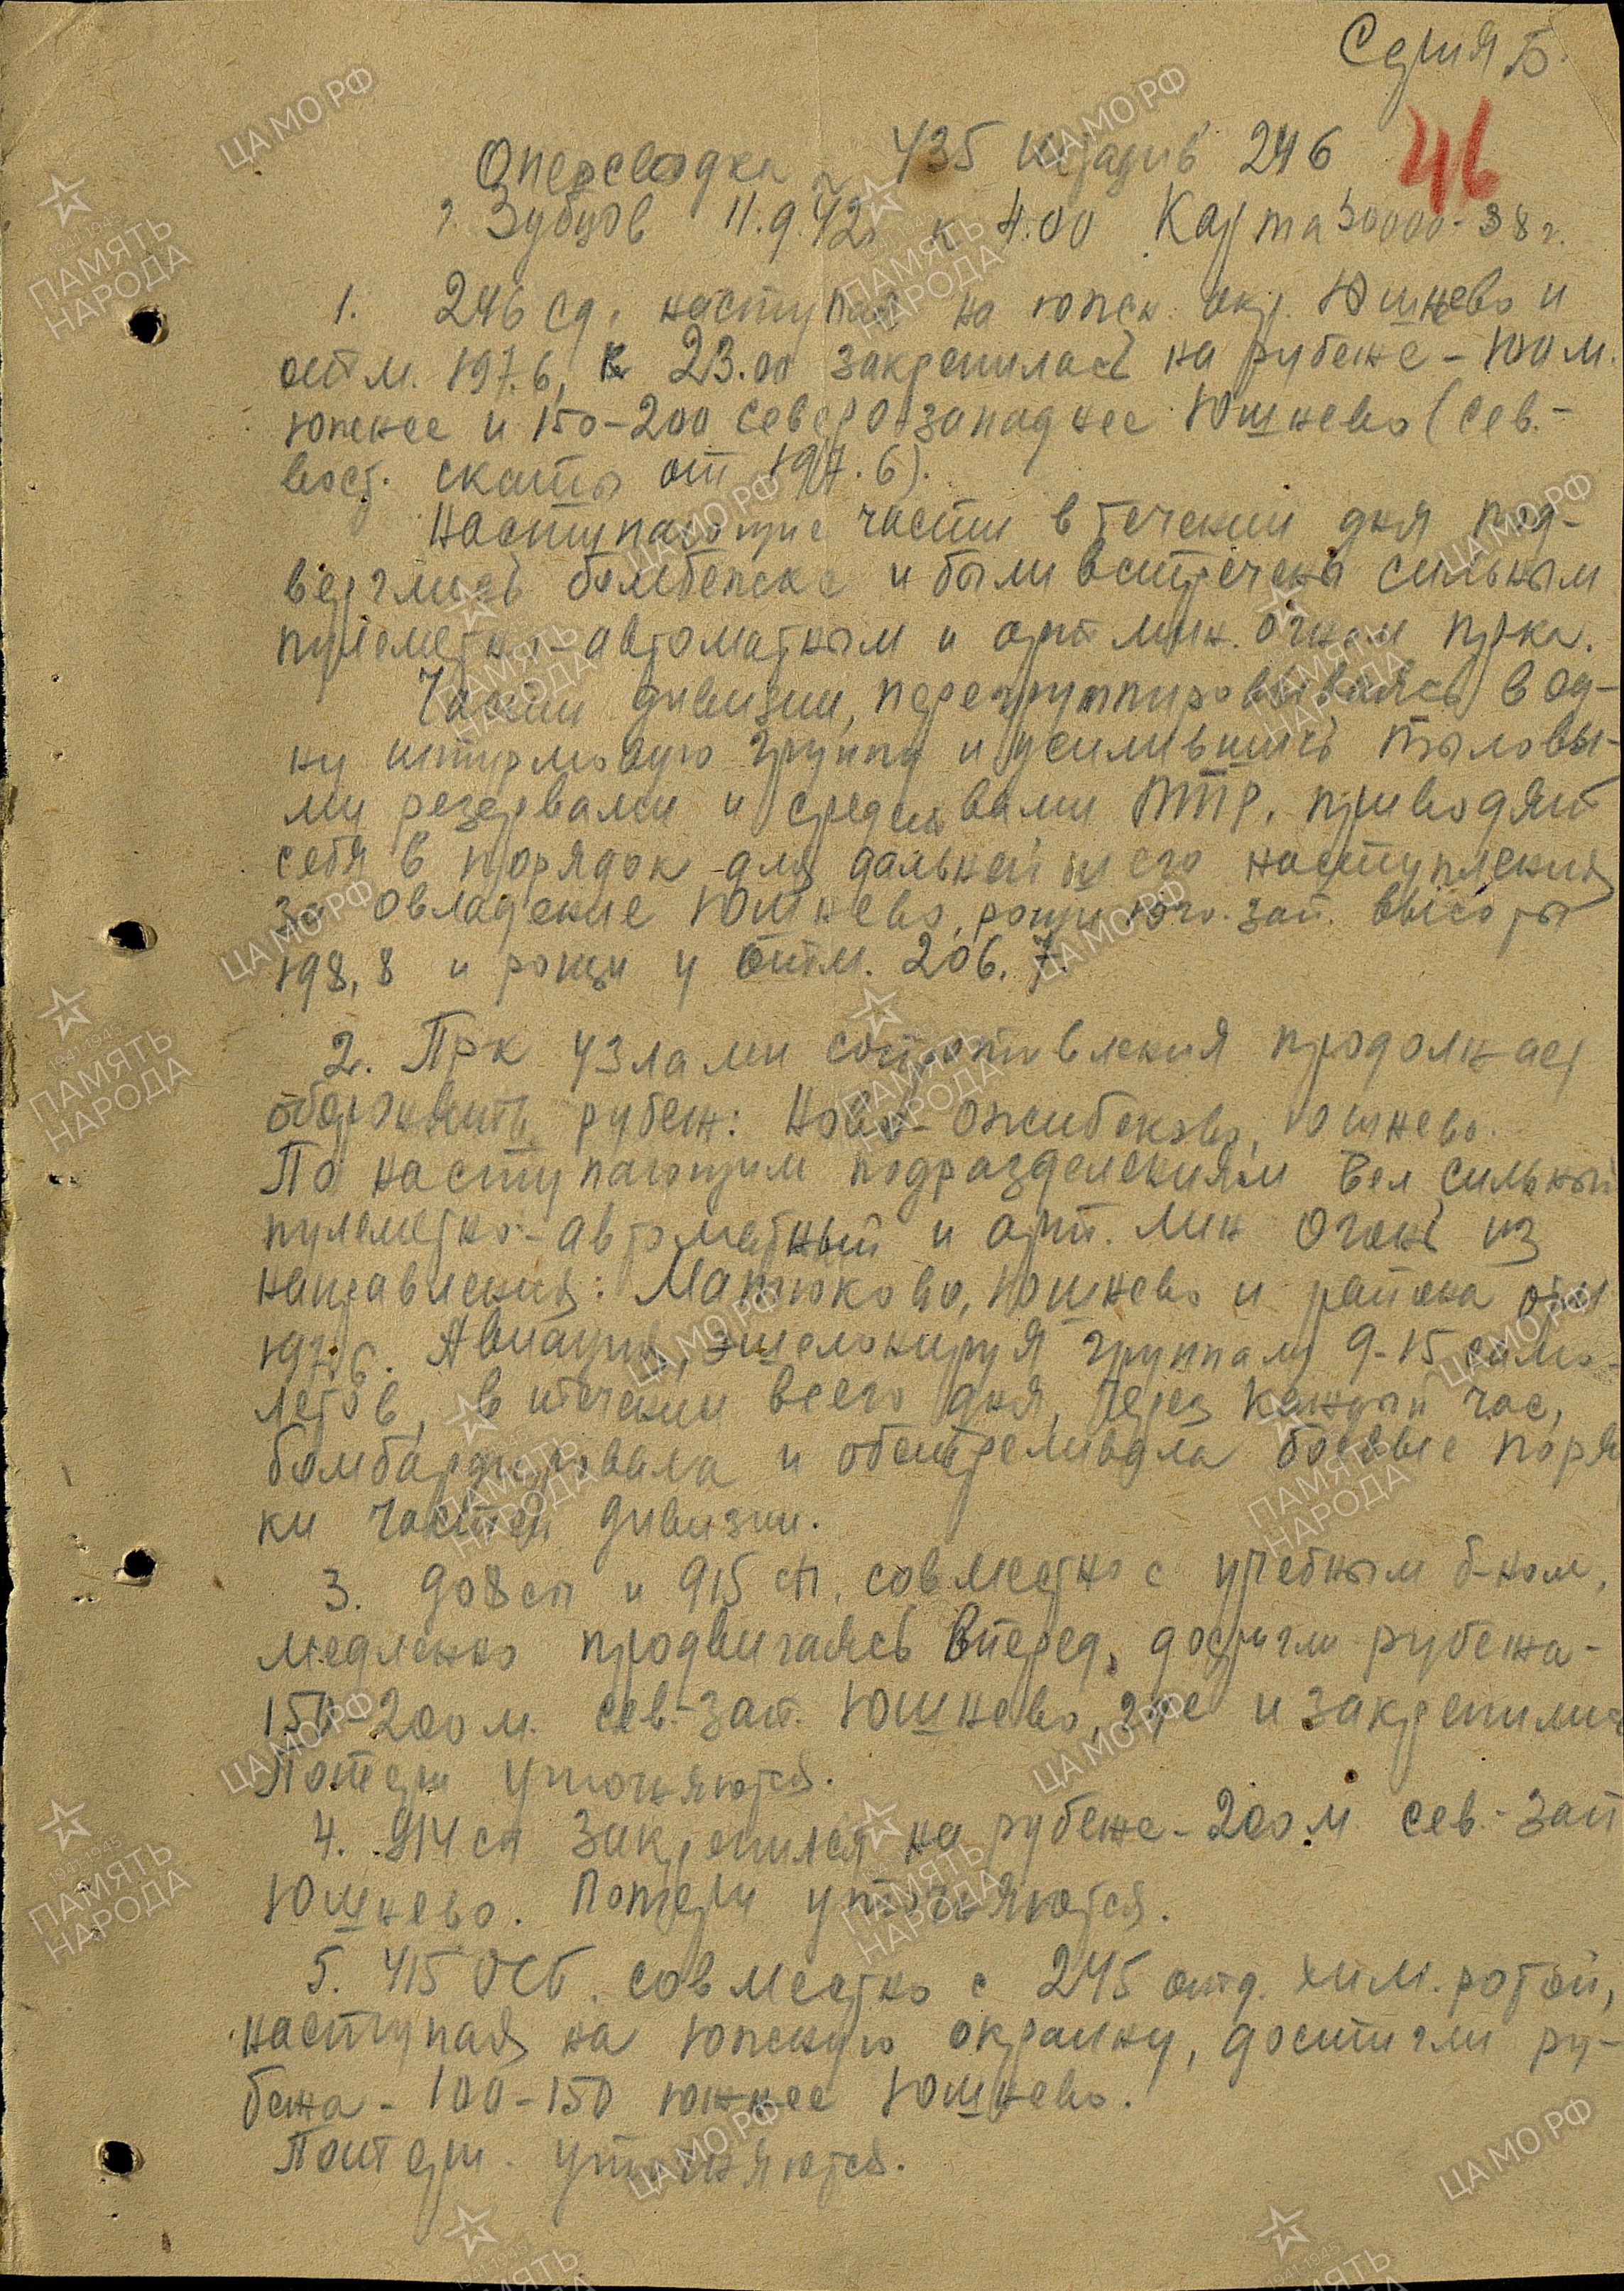 Серия Б.
46
Оперсводка № 435 Штадив 246
г. Зубцов 11.9.42г к 4.00 Карта 50000-38г.
1. 246 сд, наступая на южн. окр. Юшнево и
отм. 197.6, к 23.00 закрепилась на рубеже - 100 м.
южнее и 150-200 северо-западнее Юшнево (сев.-
вост. скаты от 197.6).
Наступающие части в течении дня под-
верглись бомбежке и были встречены сильным
пулеметно-автоматным и арт. мин. огнем пр-ка.
Части дивизии, перегруппировываясь в од-
ну штурмовую группу и усилившись тыловы-
ми резервами и средствами ПТР, приводят
себя в порядок для дальнейшего наступления
за овладение Юшнево, рощи юго-зап. высоты
198,8 и рощи у отм. 206.7.
2. Пр-к узлами сопротивления продолжает
оборонять рубеж: Ново-Ожибоково, Юшнево.
По наступающим подразделениям вел сильный
пулеметно-автоматный и арт. мин огонь из
направления: Матюково, Юшнево и района отм
197,6. Авиация, эшелонируя группами 9-15 само-
летов, в течении всего дня, через каждый час,
бомбардировала и обстреливала боевые поряд
ки частей дивизии.
3. 908 сп и 915 сп, совместно с учебным б-ном,
медленно продвигаясь вперед, достигли рубежа-
150-200 м. сев.-зап. Юшнево, где и закрепились
Потери уточняются.
4. 914 сп закрепился на рубеже - 200 м сев.-зап
Юшнево. Потери уточняются.
5. 415 ОСБ. совместно с 245 отд. хим. ротой,
наступая на южную окраину, достигли ру-
бежа - 100-150 южнее Юшнево.
Потери уточняются.